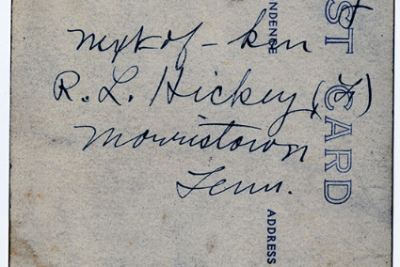 next-of-kin
R. L. Hickey, (F)
Morristown
Tenn.
ST CARD
NDENCE
ADDRESS